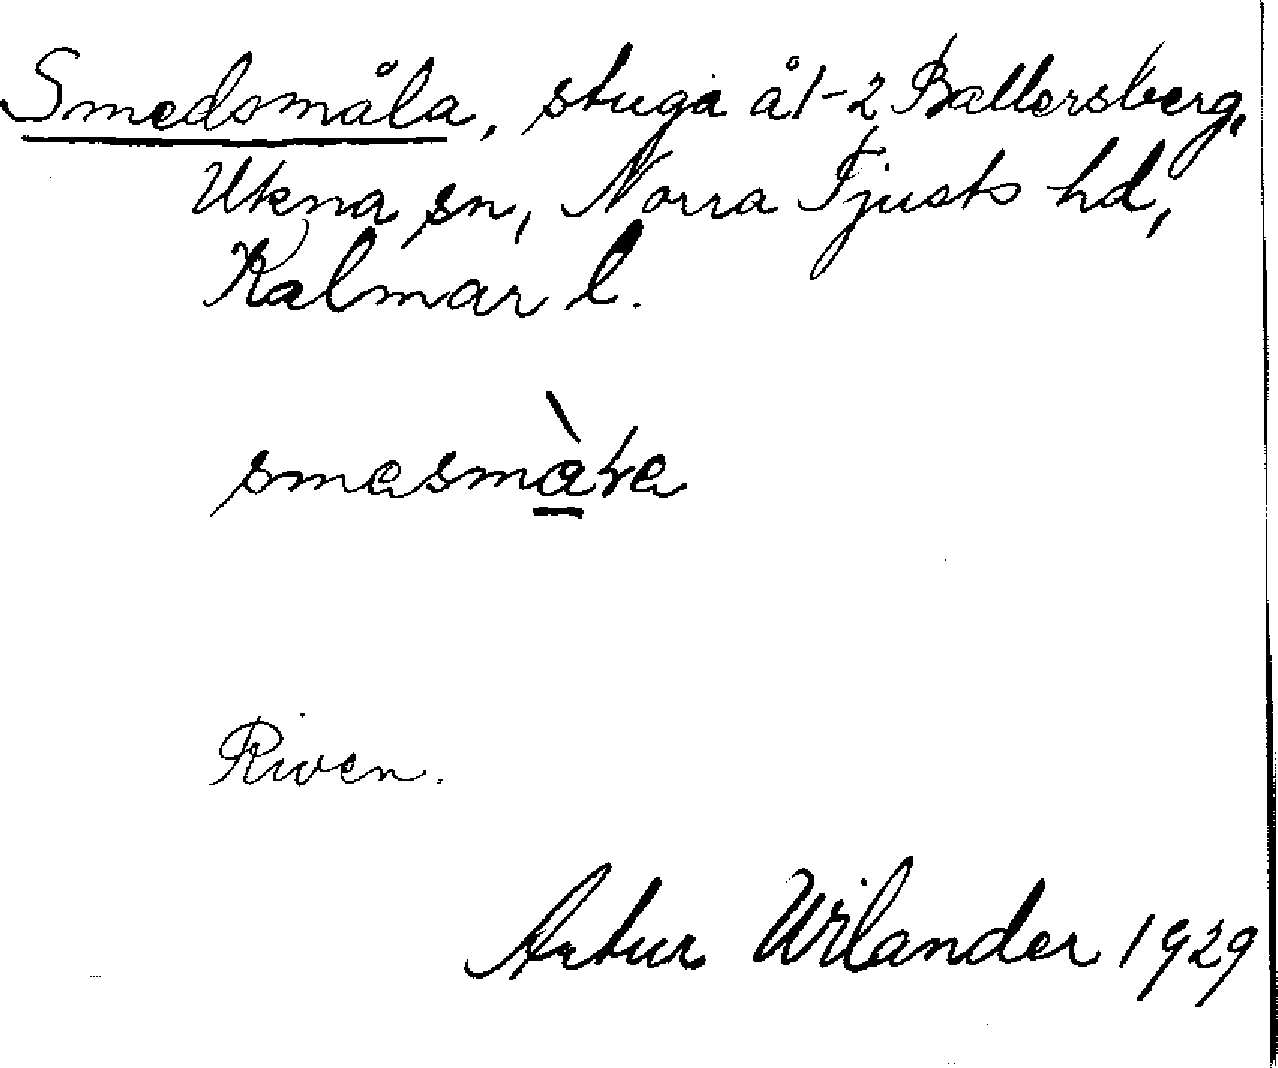 Smedsmåla, stuga å 1-2 Ballersberg,
Ukna sn, Norra Tjusts hd,
Kalmar l.
Riven.
Artur Wilander 1929